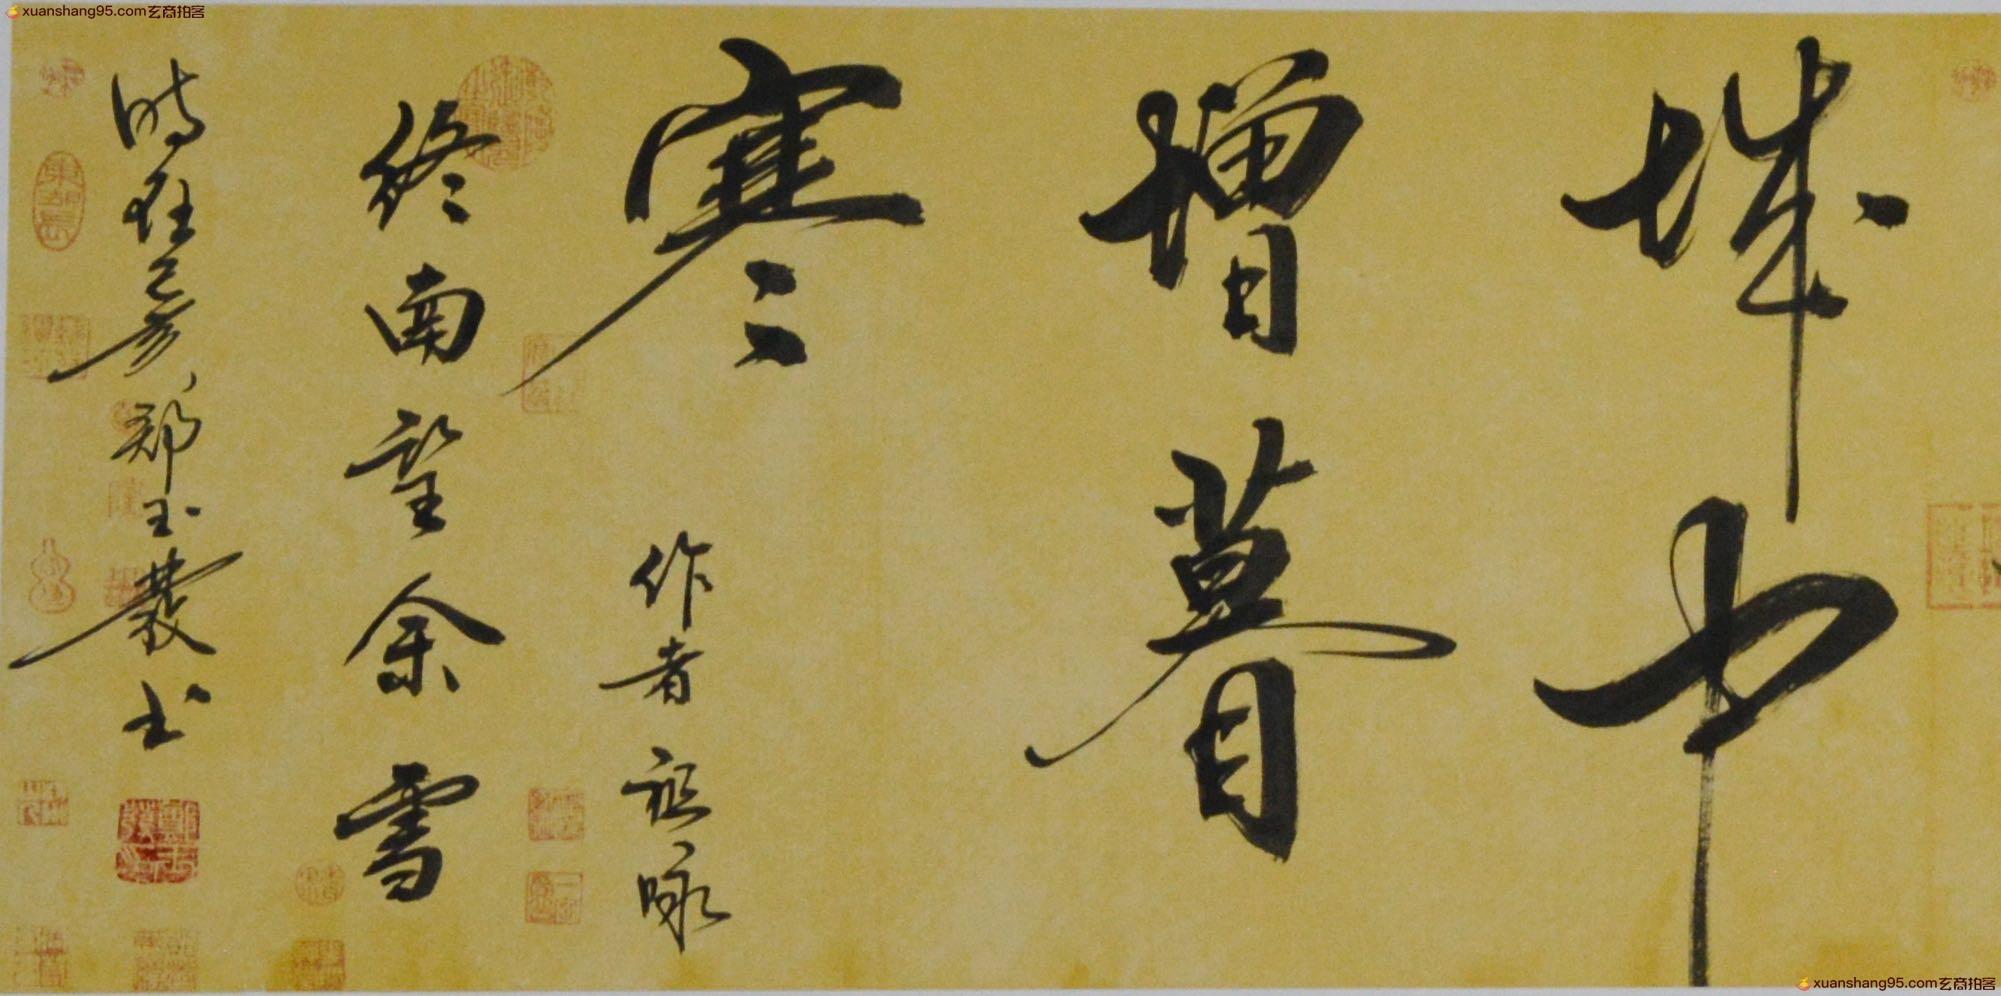 xuanshang95.com玄商拍客
城中
增暮
寒
作者祖咏
终南望余雪
时在己亥郑玉農书
xuanshang95.com玄商拍客